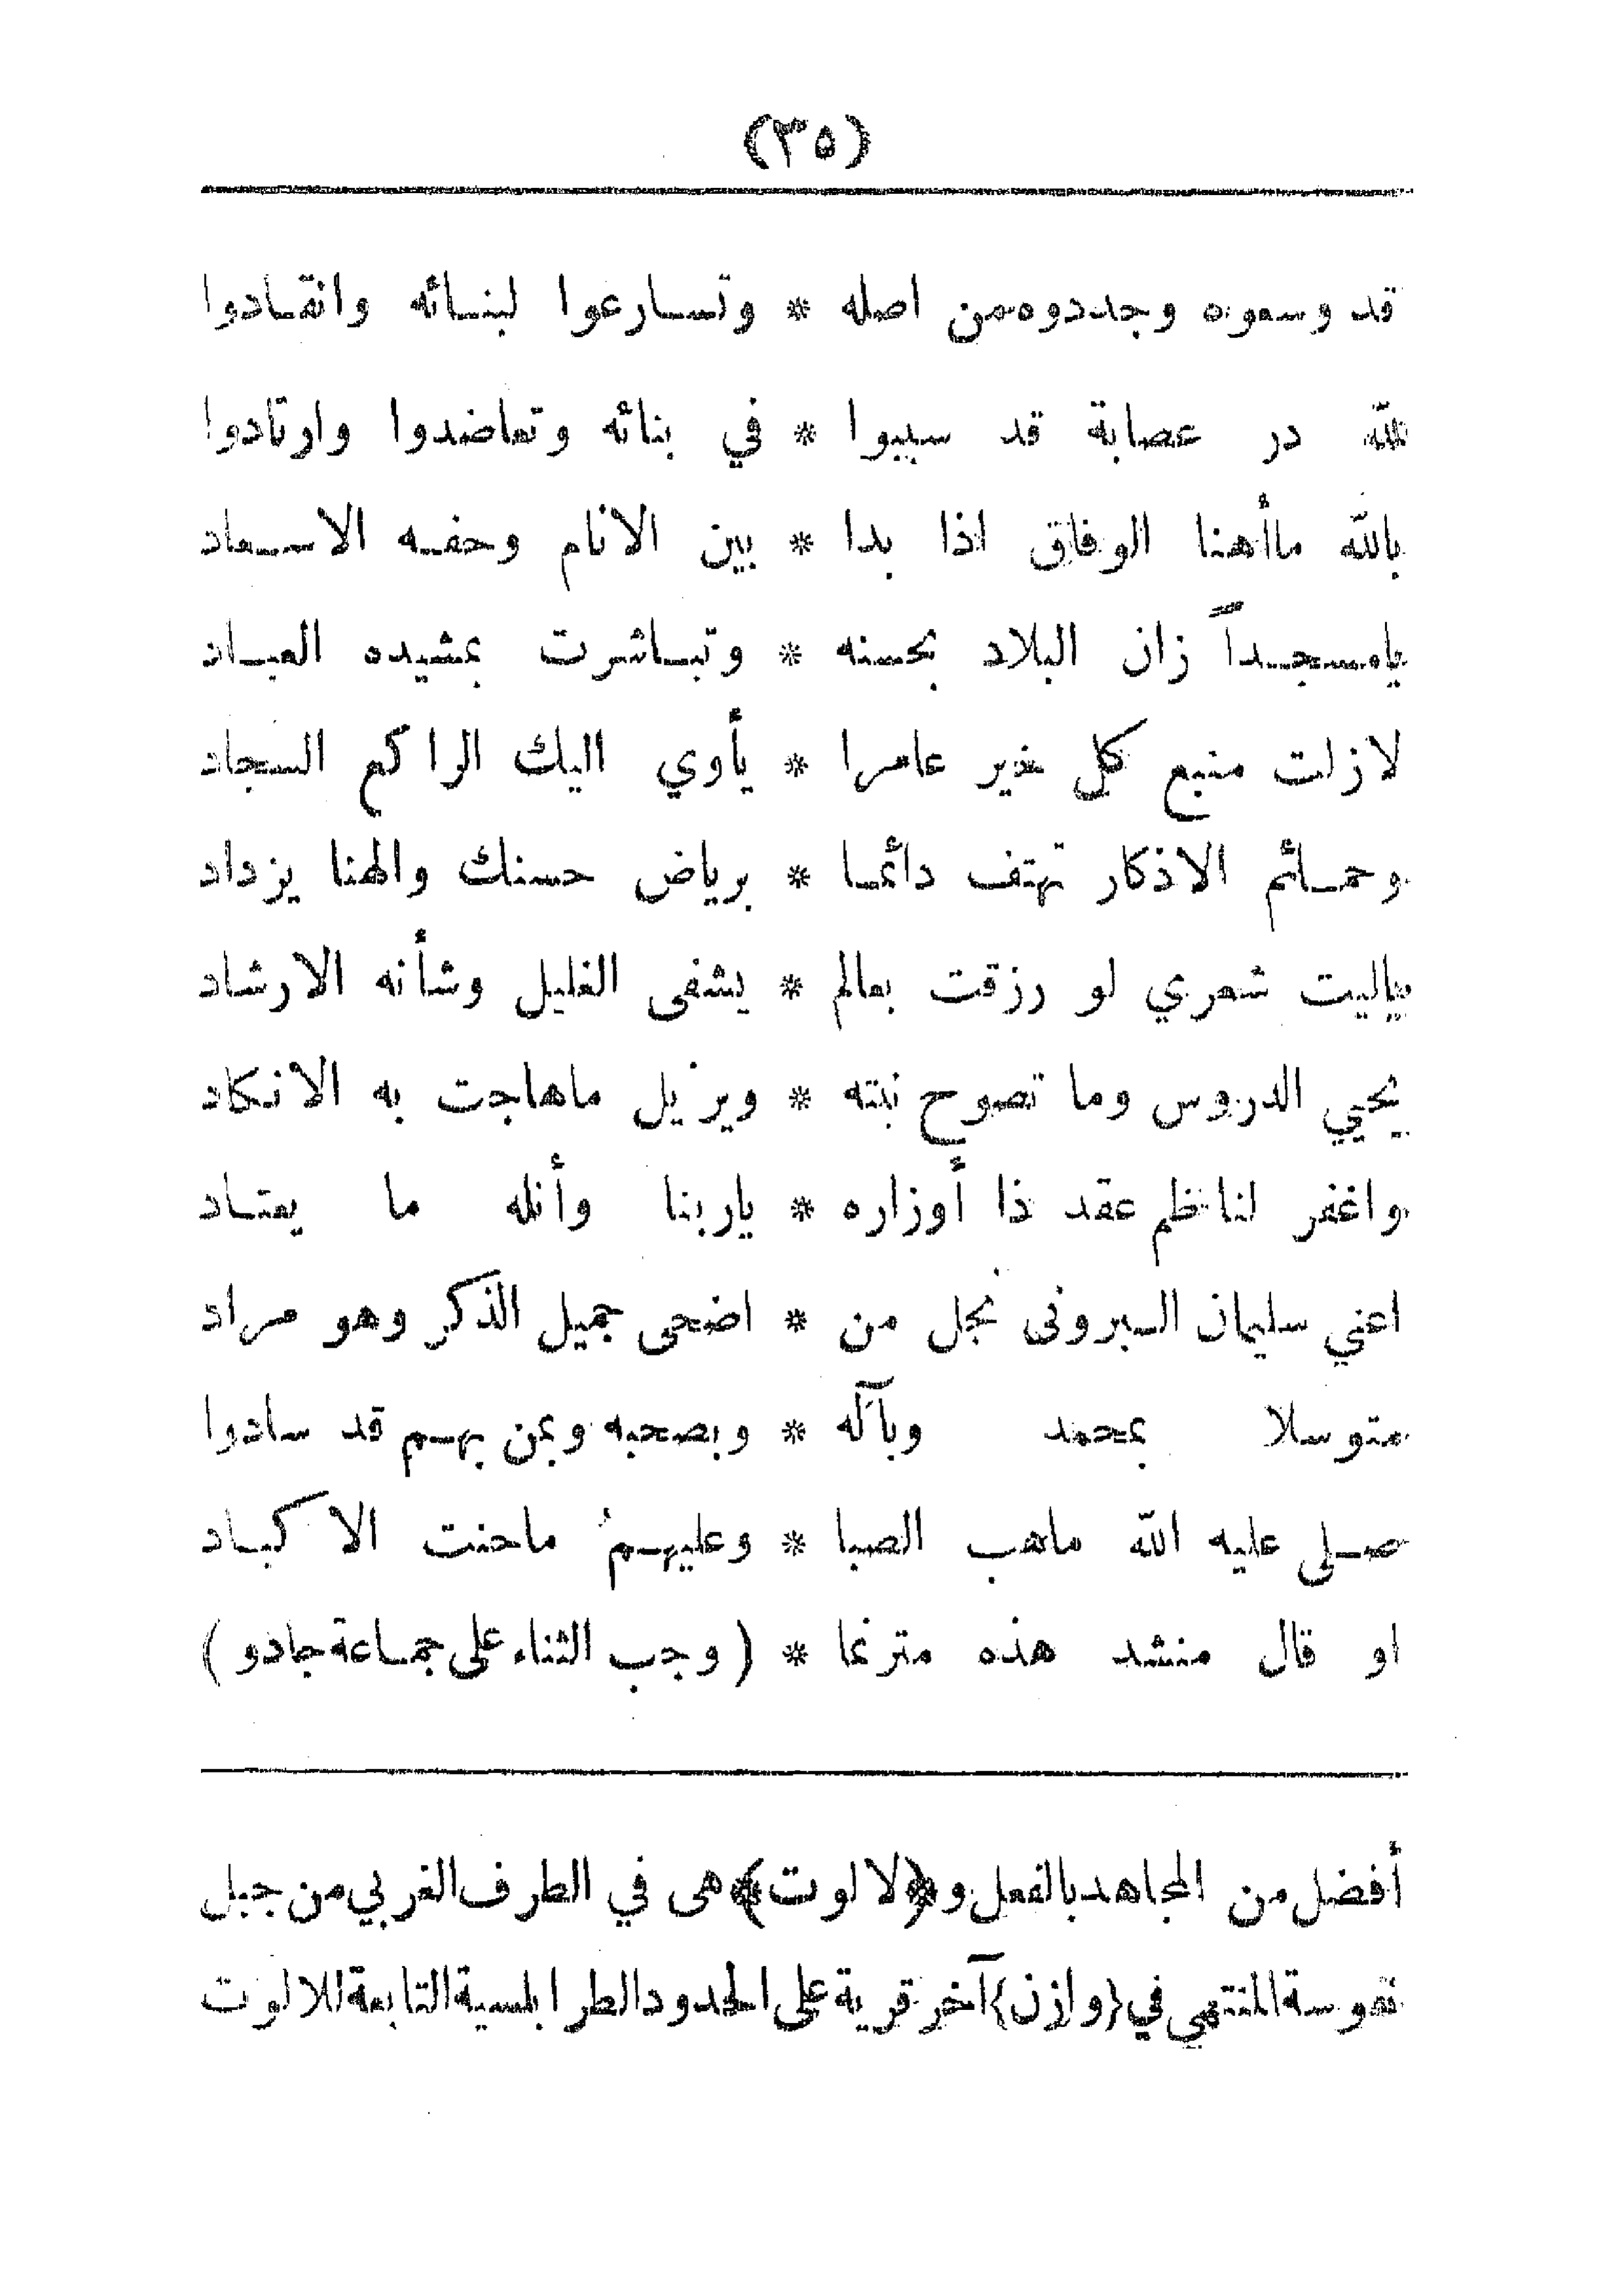 (٣٥)
قد وسعوه وجددوه من اصله * وتسارعوا لبنائه وانقادوا
لله در عصابة قد سببوا * في بنائه وتعاضدوا وارتادوا
بالله ماأهنا الوفاق اذا بدا * بين الانام وحفه الاسعاد
يامسجداً زان البلاد بحسنه * وتباشرت بمشيده العباد
لازلت منبع كل خير عامرا * يأوي اليك الراكع السجاد
وحمائم الاذكار تهتف دائما * برياض حسنك والهنا يزداد
ياليت شعري لو رزقت بعالم * يشفى الغليل وشأنه الارشاد
يحيي الدروس وما تصوح نبته * ويزيل ماهاجت به الانكاد
واغفر لناظم عقد ذا أوزاره * ياربنا وأنله ما يعتاد
اعني سليمان السيرونى نجل من * اضحى جميل الذكر وهو مراد
متوسلا بمحمد وبآله * وبصحبه وبمن بهم قد سادوا
صلى عليه الله ماهب الصبا * وعليهمُ ماحنت الاكباد
او قال منشد هذه مترنما * (وجب الثناء على جماعة جادو)
أفضل من المجاهد بالفعل و﴿لالوت﴾ هى في الطرف الغربي من جبل
نفوسة المنتهي في {وازن} آخر قرية على الحدود الطرابلسية التابعة للالوت